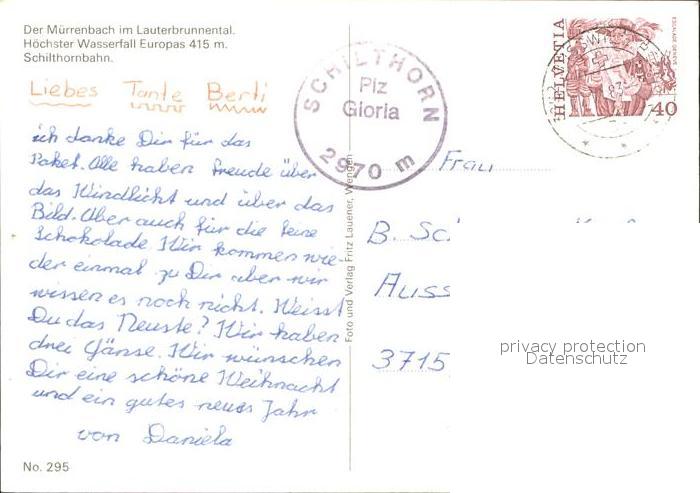 Der Mürrenbach im Lauterbrunnental.
Höchster Wasserfall Europas 415 m.
Schilthornbahn.
Liebes Tante Berti
ich danke Dir für das
Paket. Alle haben Freude über
das Windlicht und über das
Bild. Aber auch für die feine
Schokolade Wir kommen wie-
der einmal zu Dir aber wir
wissen es noch nicht. Weisst
Du das Neuste? Wir haben
drei Gänse. Wir wünschen
Dir eine schöne Weihnacht
und ein gutes neues Jahr
von Daniela
No. 295
Foto und Verlag Fritz Lauener, Wengen
SCHILTHORN
Piz
Gloria
2970 m
HELVETIA
ESCALADE GENEVE
40
Frau
B. Sc
Auss
3715
privacy protection
Datenschutz